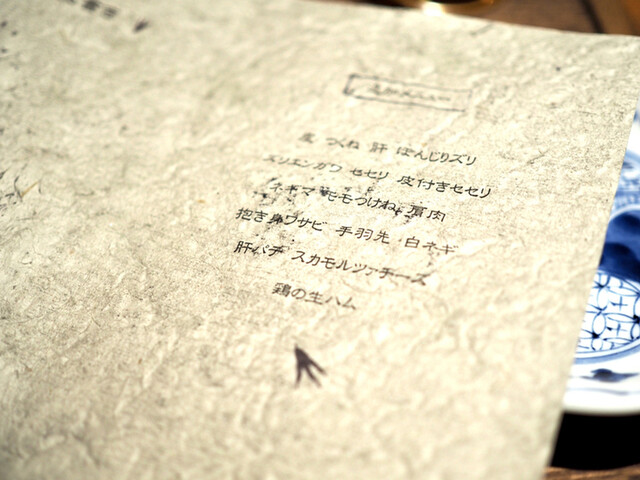 皮 つくね 肝 ぼんじりズリ
エンガワ セセリ 皮付きセセリ
ネギマ モモつけね 肩肉
抱き身ワサビ 手羽先 白ネギ
肝パテ スカモルツァチーズ
鶏の生ハム